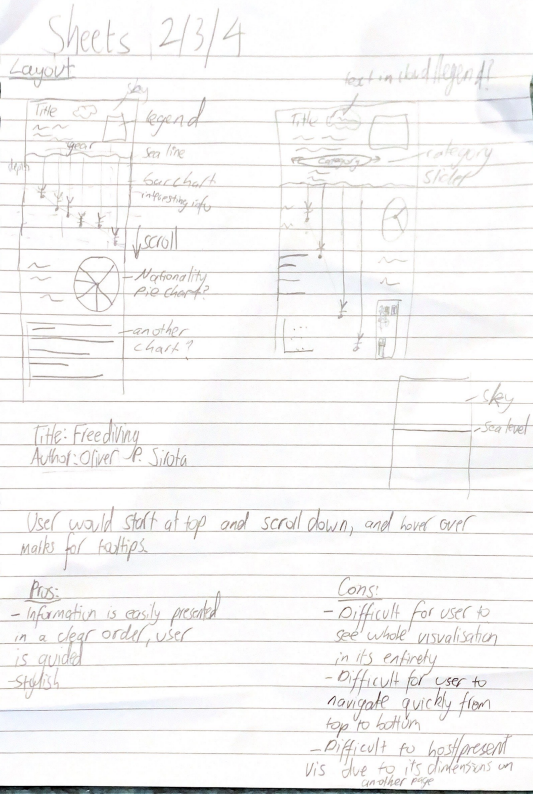 Sheets 2/3/4
Layout
text in cloud legend?
sky
Title
legend
year
sea line
depth
bar chart
interesting info
scroll
Nationality
pie chart?
another
chart?
Title
category
category
slider
sky
sea level
Title: Freediving
Author: Oliver P. Sirota
User would start at top and scroll down, and hover over
marks for tooltips.
Pros:
- Information is easily presented
in a clear order, user
is guided
- stylish
Cons:
- Difficult for user to
see whole visualisation
in its entirety
- Difficult for user to
navigate quickly from
top to bottom
- Difficult to host/present
vis due to its dimensions on
another page